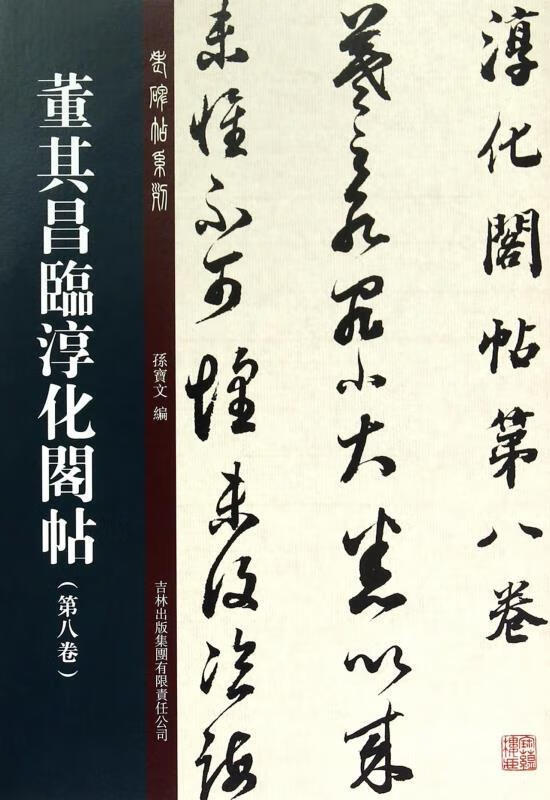 淳化閣帖第八卷
羲之死罪小大悉以來
未惟不可
未復
老碑帖系列
孫寶文 編
吉林出版集團有限責任公司
董其昌臨淳化閣帖（第八卷）